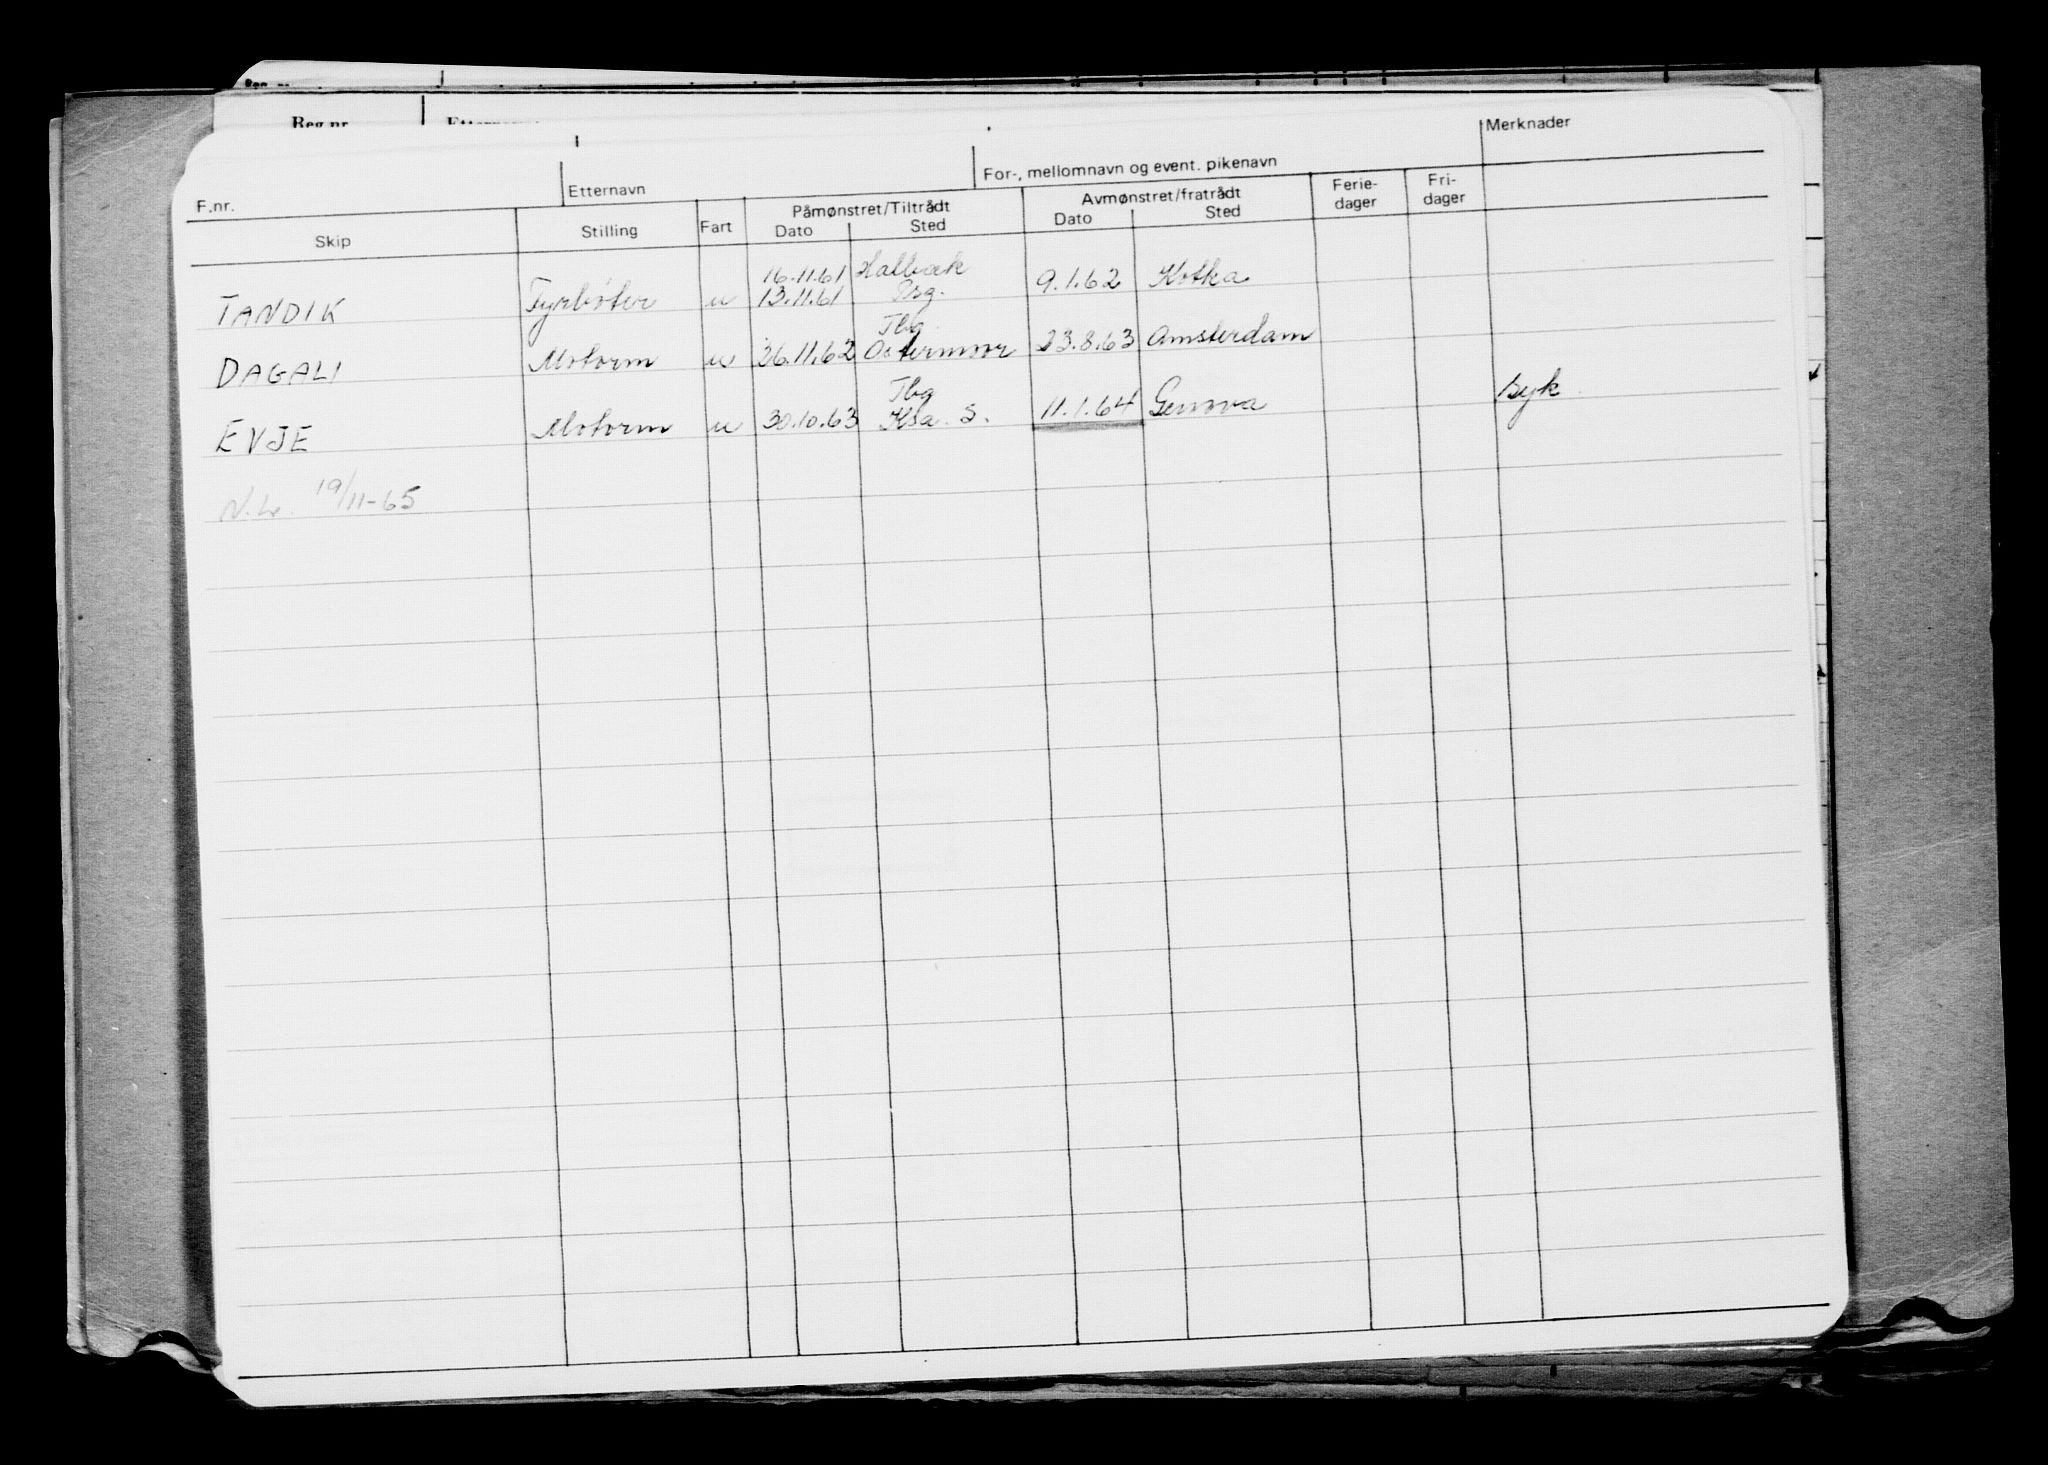 Reg.nr.
Etternavn
Merknader
F.nr.
Etternavn
For-, mellomnavn og event. pikenavn
Skip
Stilling
Fart
Påmønstret/Tiltrådt
Dato
Sted
Avmønstret/fratrådt
Dato
Sted
Ferie-
dager
Fri-
dager
16.11.61 Holbæk
TANDIK Fyrbøter u 13.11.61 Psg. 9.1.62 Kotka
Tbg.
DAGALI Motorm u 26.11.62 Ostermoor 23.8.63 Amsterdam
Tbg
EVJE Motorm u 30.10.63 Ksa. S. 11.1.64 Genova Syk
19/11-65